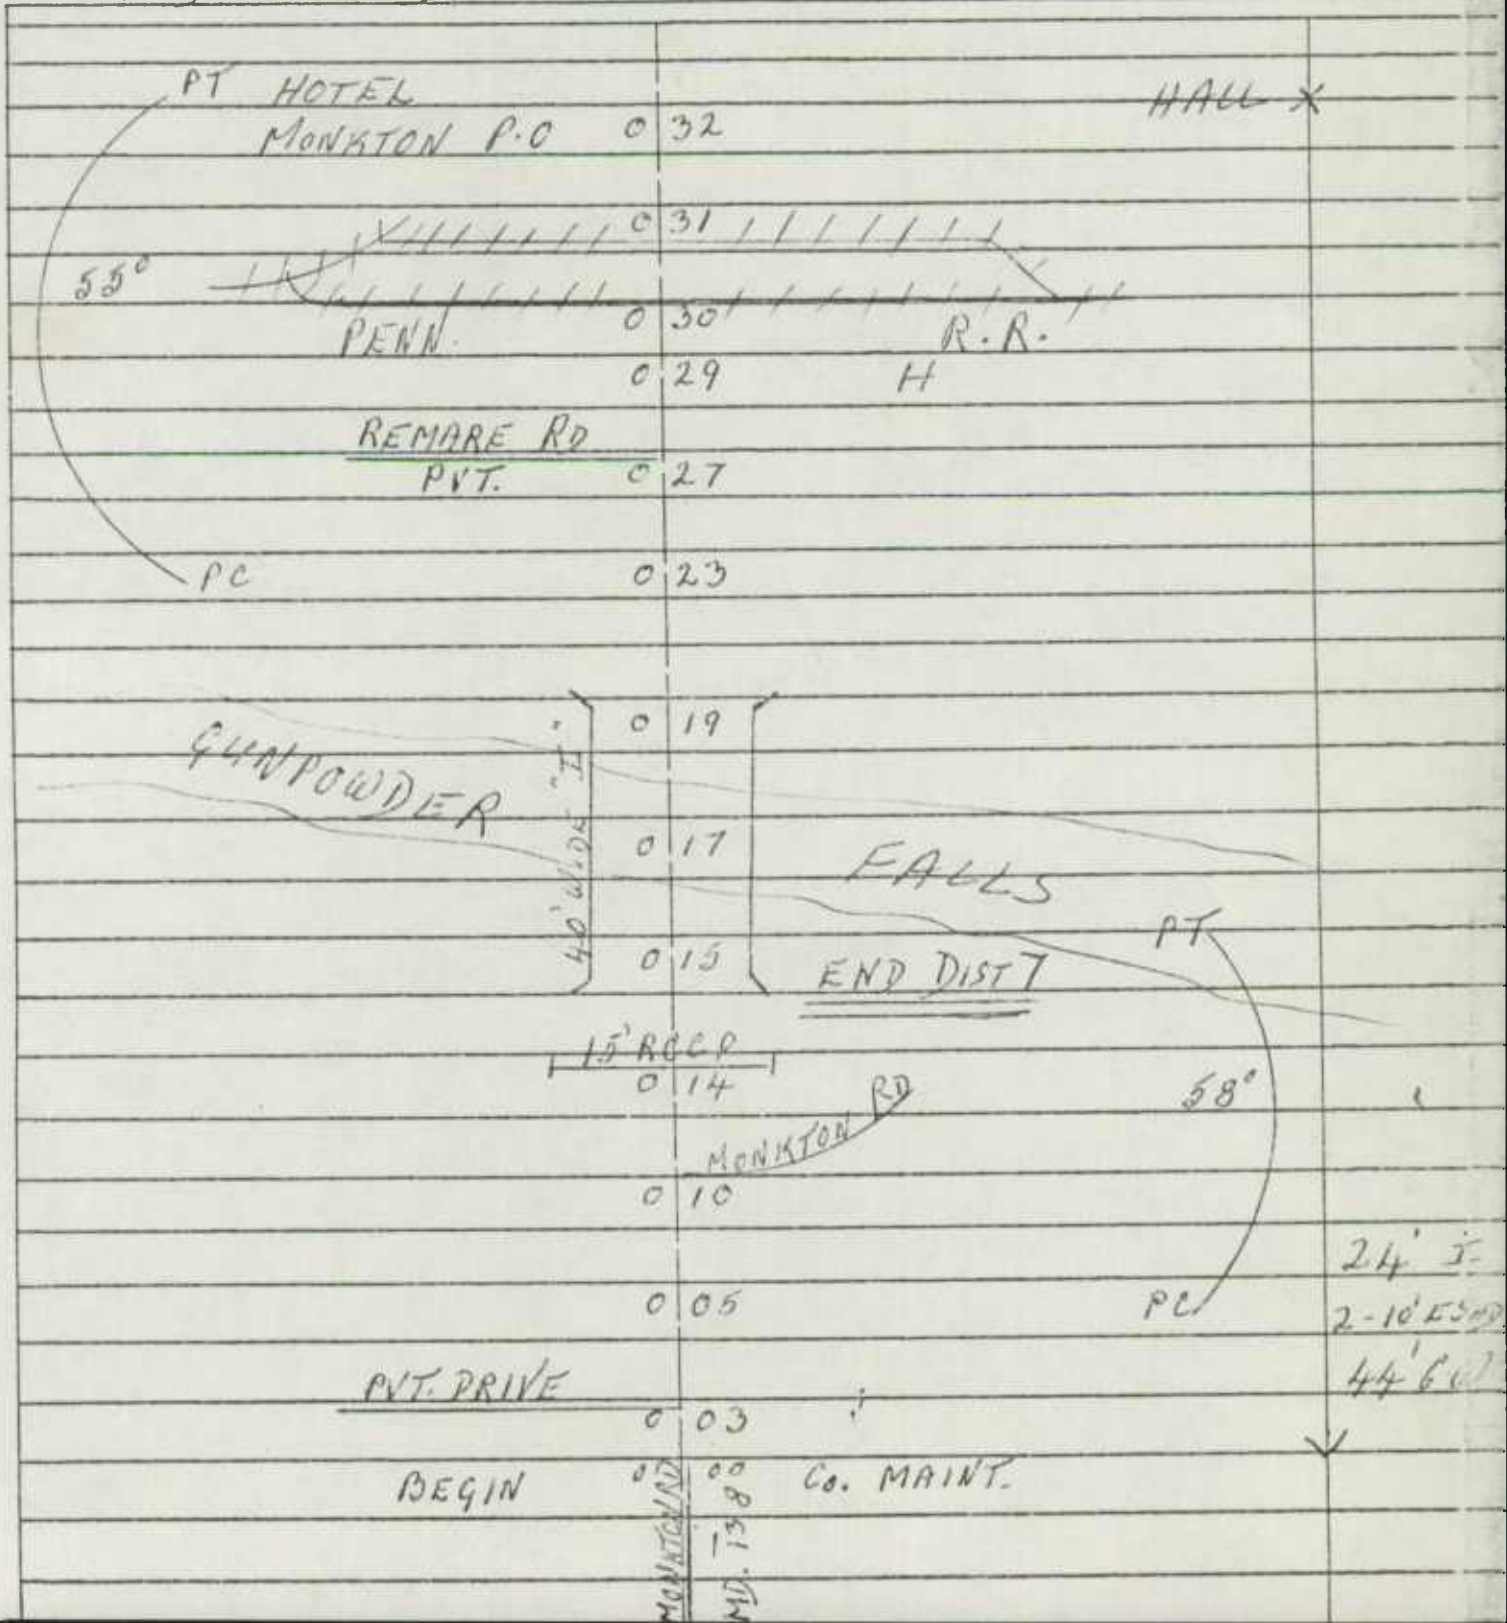 PT HOTEL HALL X
MONKTON P.O 0 32
0 31
55°
PENN. 0 30 R.R.
0 29 H
REMARE RD
PVT. 0 27
PC 0 23
0 19
GUNPOWDER
40' WIDE "I"
0 17 FALLS
PT
0 15 END DIST 7
15' RCCP
0 14
58°
MONKTON RD
0 10
24' I
0 05 PC
2-10'
PVT. DRIVE
44'
0 03
BEGIN 0 00 Co. MAINT.
MONKTON RD
MD. 138